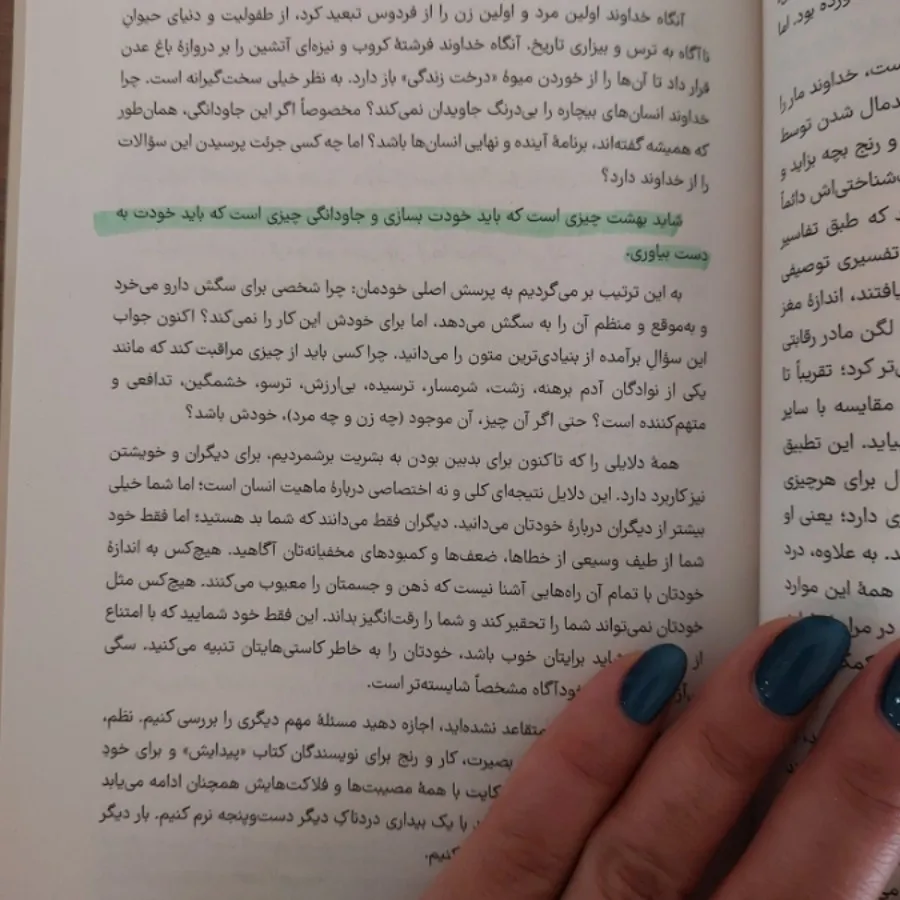 آنگاه خداوند اولین مرد و اولین زن را از فردوس تبعید کرد، از طفولیت و دنیای حیوانِ
ناآگاه به ترس و بیزاری تاریخ. آنگاه خداوند فرشتهٔ کروب و نیزه‌ای آتشین را بر دروازهٔ باغ عدن
قرار داد تا آن‌ها را از خوردن میوهٔ «درخت زندگی» باز دارد. به نظر خیلی سخت‌گیرانه است. چرا
خداوند انسان‌های بیچاره را بی‌درنگ جاویدان نمی‌کند؟ مخصوصاً اگر این جاودانگی، همان‌طور
که همیشه گفته‌اند، برنامهٔ آینده و نهایی انسان‌ها باشد؟ اما چه کسی جرئت پرسیدن این سؤالات
را از خداوند دارد؟
شاید بهشت چیزی است که باید خودت بسازی و جاودانگی چیزی است که باید خودت به
دست بیاوری.
به این ترتیب بر می‌گردیم به پرسش اصلی خودمان: چرا شخصی برای سگش دارو می‌خرد
و به‌موقع و منظم آن را به سگش می‌دهد، اما برای خودش این کار را نمی‌کند؟ اکنون جواب
این سؤالِ برآمده از بنیادی‌ترین متون را می‌دانید. چرا کسی باید از چیزی مراقبت کند که مانند
یکی از نوادگان آدم برهنه، زشت، شرمسار، ترسیده، بی‌ارزش، ترسو، خشمگین، تدافعی و
متهم‌کننده است؟ حتی اگر آن چیز، آن موجود (چه زن و چه مرد)، خودش باشد؟
همهٔ دلایلی را که تاکنون برای بدبین بودن به بشریت برشمردیم، برای دیگران و خویشتن
نیز کاربرد دارد. این دلایل نتیجه‌ای کلی و نه اختصاصی دربارهٔ ماهیت انسان است؛ اما شما خیلی
بیشتر از دیگران دربارهٔ خودتان می‌دانید. دیگران فقط می‌دانند که شما بد هستید؛ اما فقط خود
شما از طیف وسیعی از خطاها، ضعف‌ها و کمبودهای مخفیانه‌تان آگاهید. هیچ‌کس به اندازهٔ
خودتان با تمام آن راه‌هایی آشنا نیست که ذهن و جسمتان را معیوب می‌کنند. هیچ‌کس مثل
خودتان نمی‌تواند شما را تحقیر کند و شما را رقت‌انگیز بداند. این فقط خود شمایید که با امتناع
از شاید برایتان خوب باشد، خودتان را به خاطر کاستی‌هایتان تنبیه می‌کنید. سگی
خودآگاه مشخصاً شایسته‌تر است.
متقاعد نشده‌اید، اجازه دهید مسئلهٔ مهم دیگری را بررسی کنیم. نظم،
بصیرت، کار و رنج برای نویسندگان کتاب «پیدایش» و برای خودِ
با همهٔ مصیبت‌ها و فلاکت‌هایش همچنان ادامه می‌یابد
با یک بیداری دردناکِ دیگر دست‌وپنجه نرم کنیم. بار دیگر
کنیم.
بود. اما
خداوند مار را
توسط
و رنج بچه بزاید و
دائماً
که طبق تفاسیر
تفسیری توصیفی
اندازهٔ مغز
لگن مادر رقابتی
کرد؛ تقریباً تا
مقایسه با سایر
این تطبیق
برای هرچیزی
دارد؛ یعنی او
به علاوه، درد
همهٔ این موارد
در